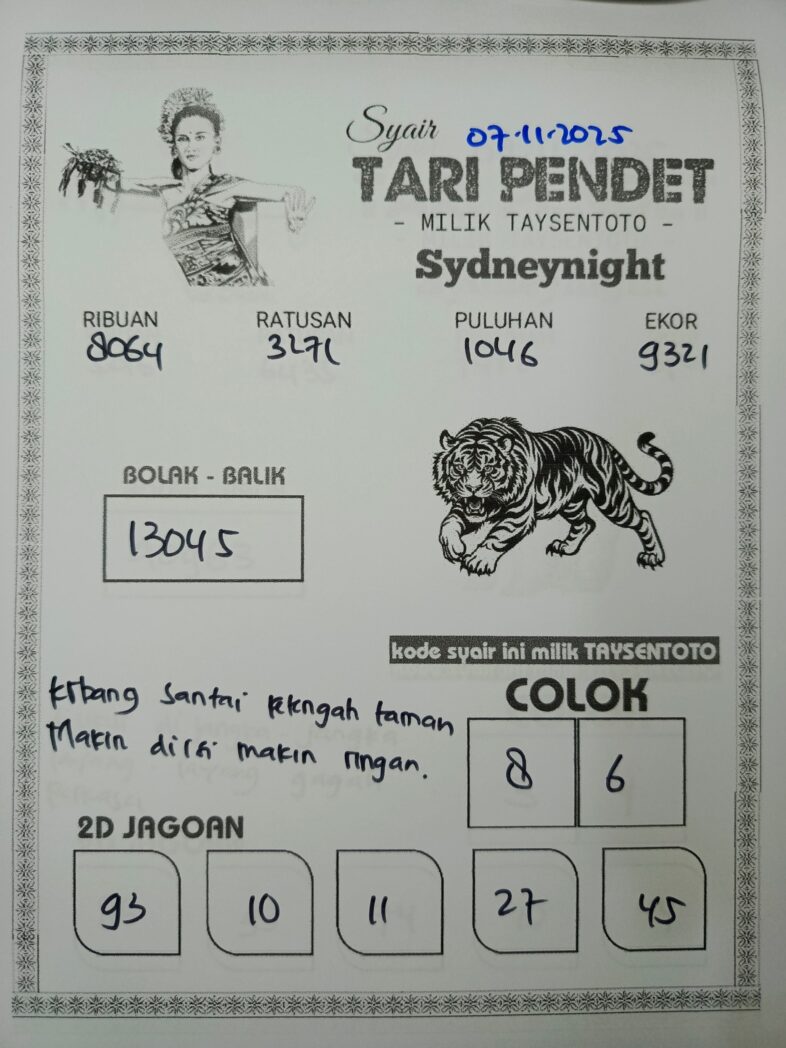 Syair 07-11-2025
TARI PENDET
- MILIK TAYSENTOTO -
Sydneynight
RIBUAN RATUSAN PULUHAN EKOR
8064 3271 1046 9321
BOLAK - BALIK
13045
kode syair ini milik TAYSENTOTO
COLOK
8 6
santai taman
Makin diisi makin ringan.
2D JAGOAN
93 10 11 27 45